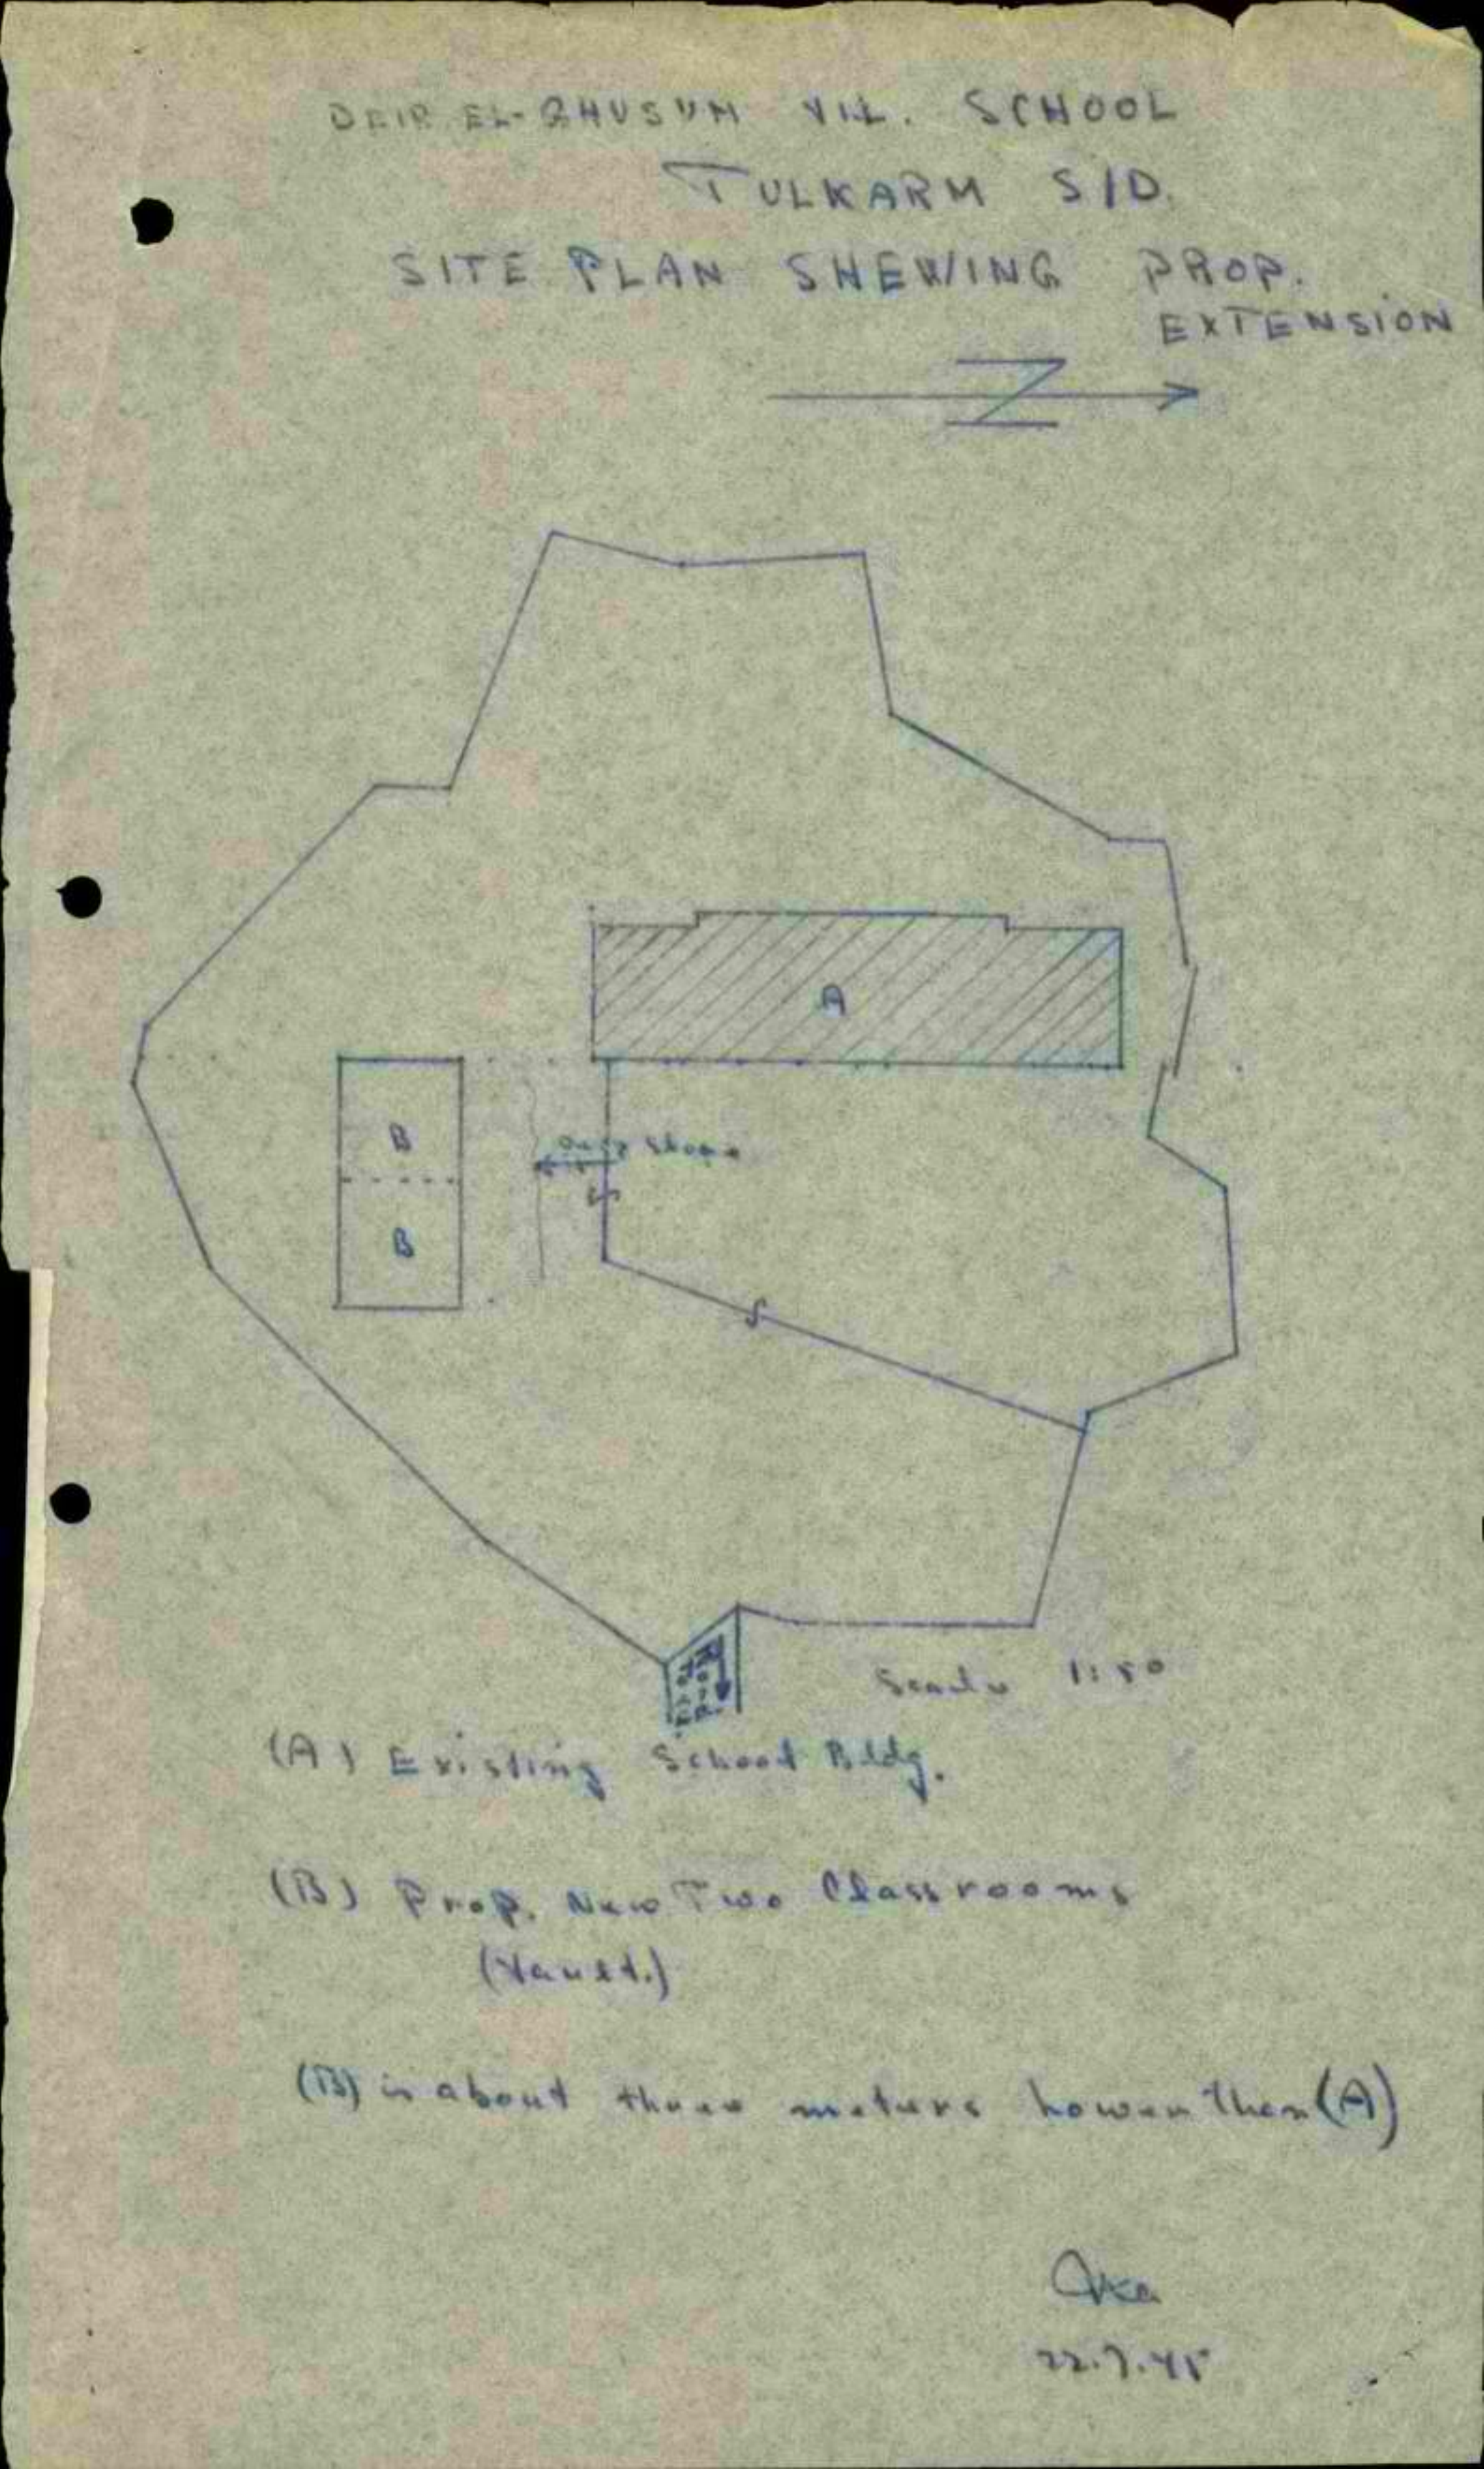 DEIR EL-GHUSUM VIL. SCHOOL
TULKARM S/D.
SITE PLAN SHEWING PROP.
EXTENSION
N
A
B
B
Slope
Scale 1:50
(A) Existing School Bldg.
(B) Prop. New Two Classrooms
(Vault.)
(B) is about three meters Lower then (A)
22.7.45